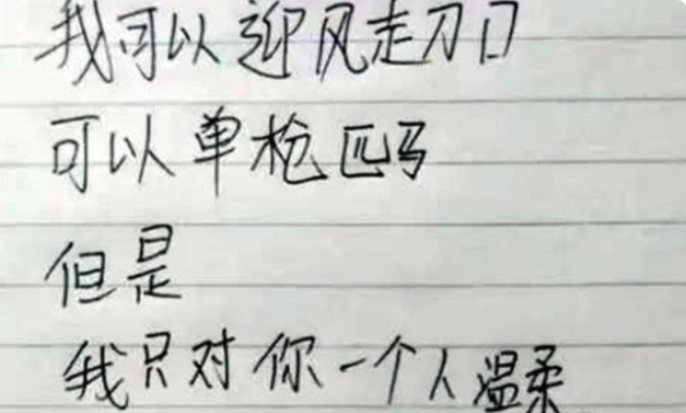 我可以迎风走刀口
可以单枪匹马
但是
我只对你一个人温柔